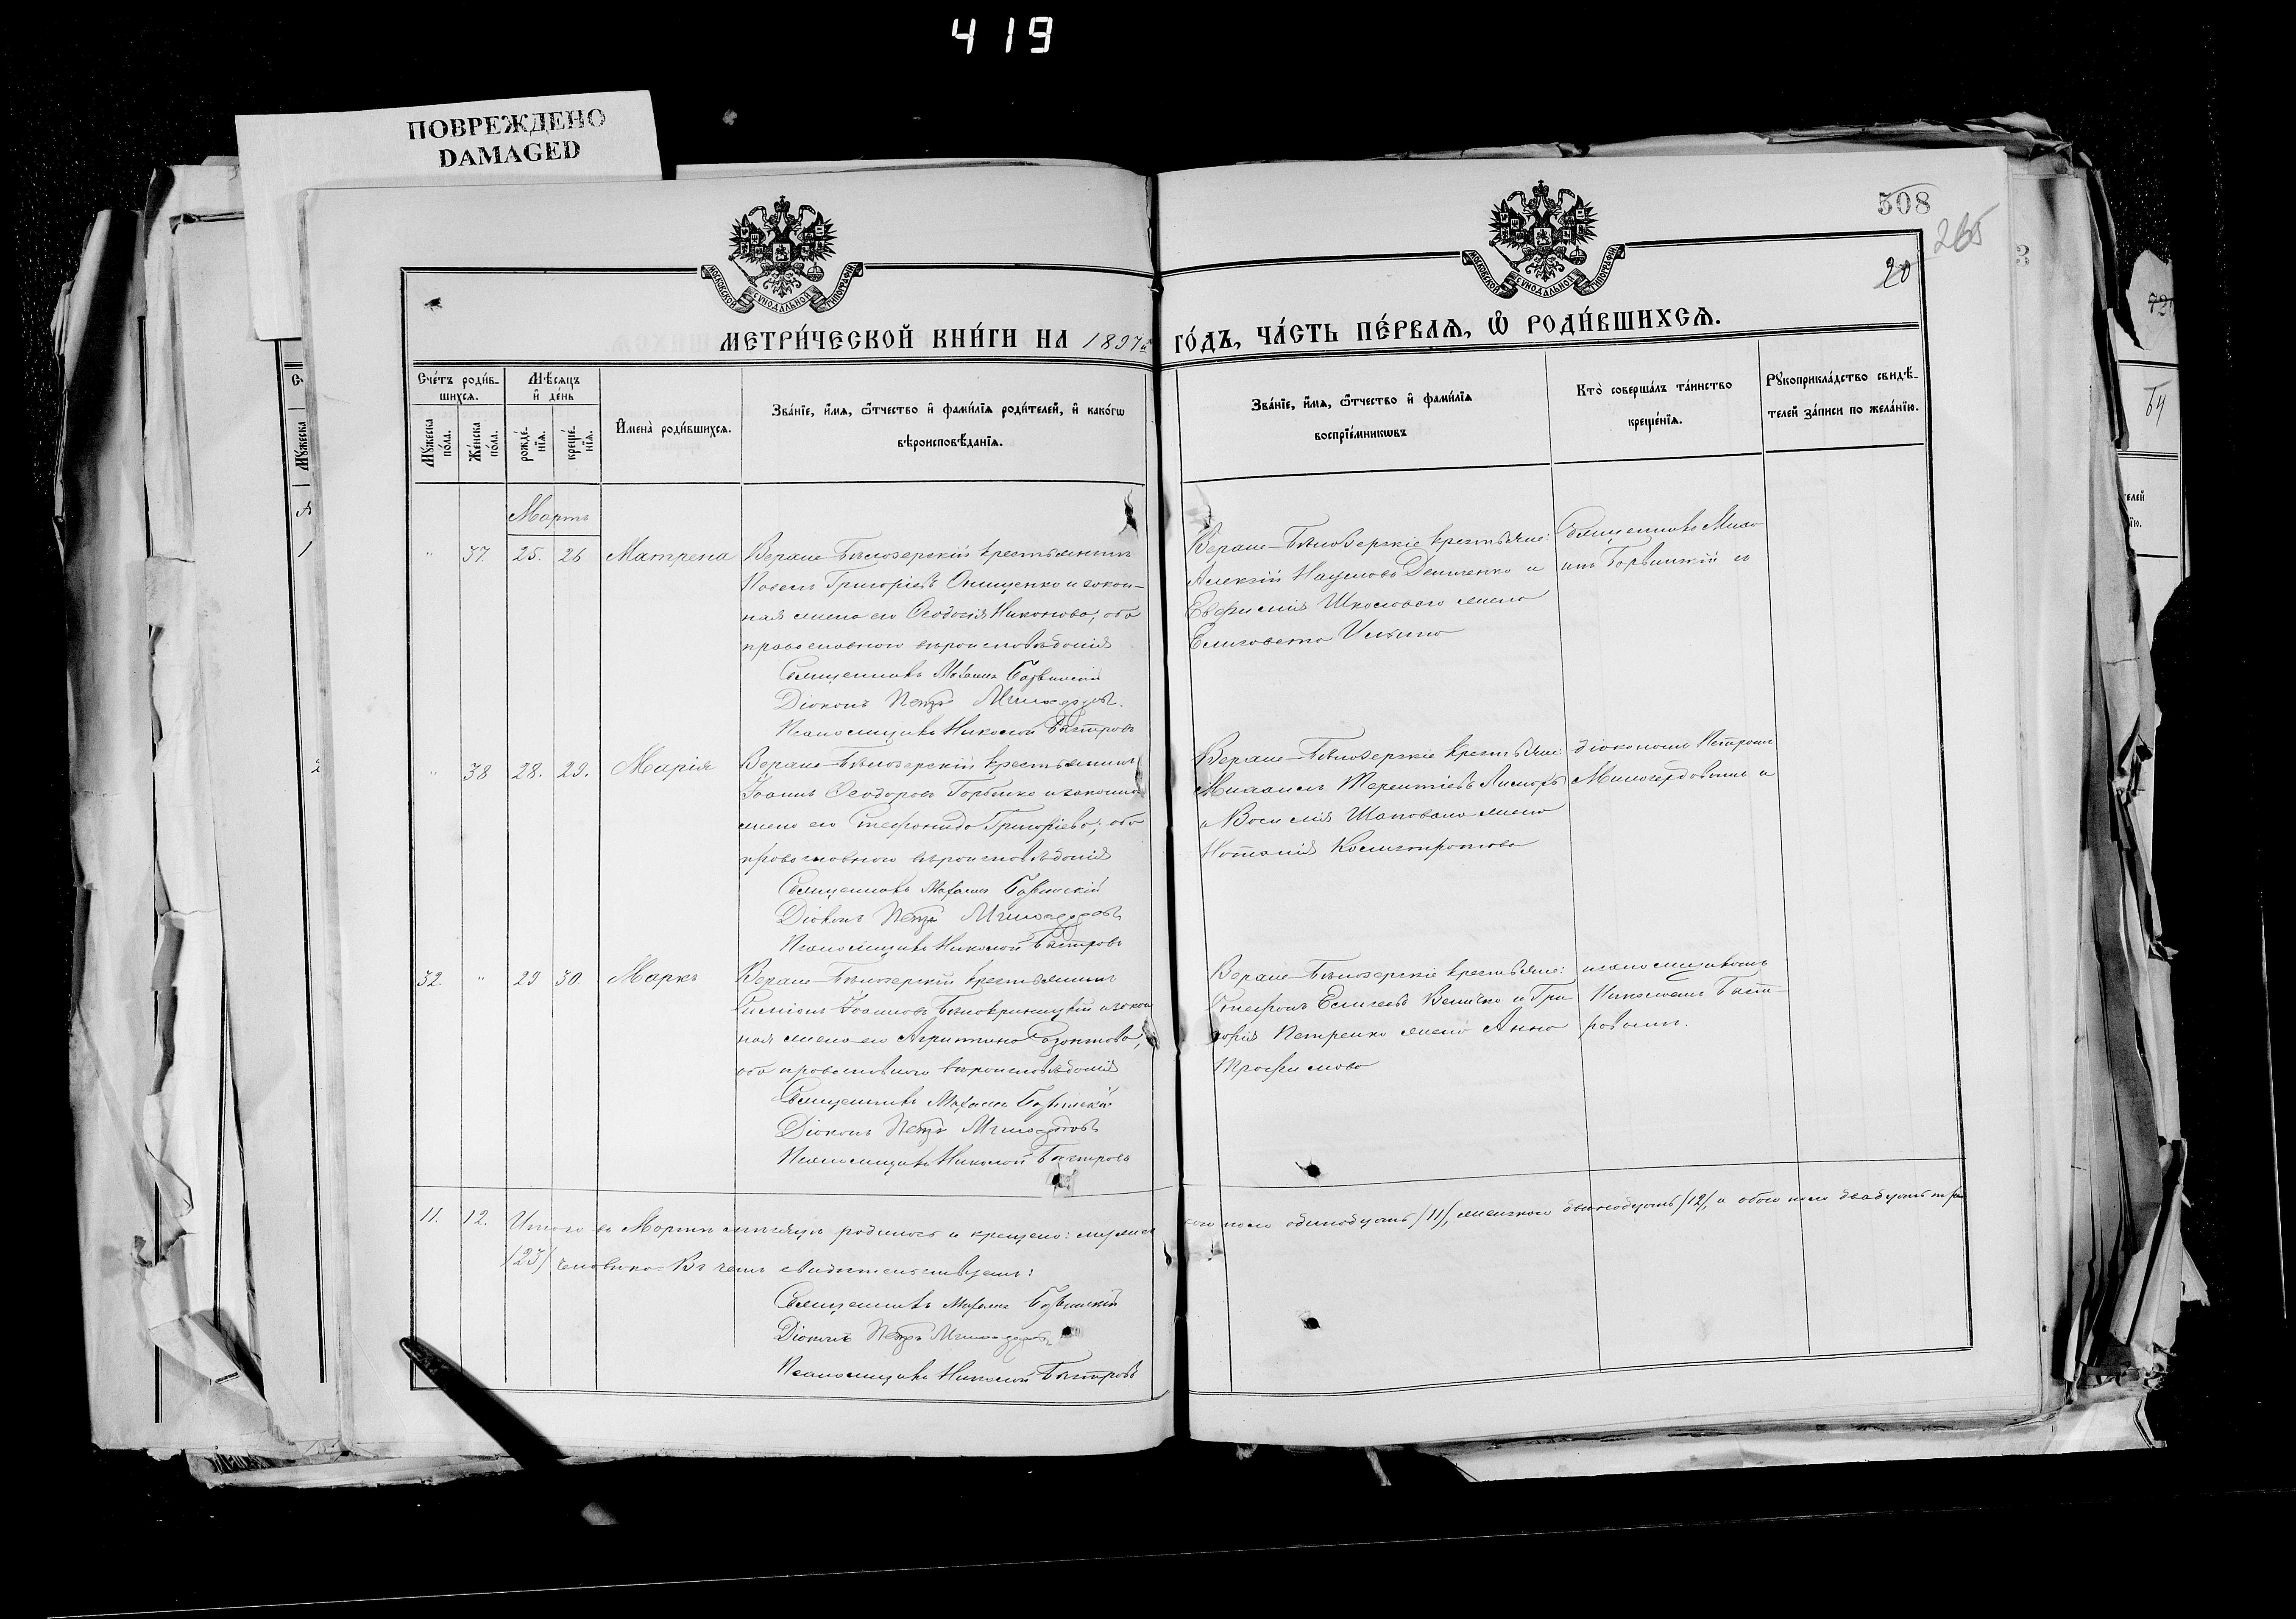 419
ПОВРЕЖДЕНО
DAMAGED
508
265
20
МОСКОВСКОЙ СУНОДАЛЬНОЙ ТИПОГРАФІИ
МОСКОВСКОЙ СУНОДАЛЬНОЙ ТИПОГРАФІИ
МЕТРИ́ЧЕСКОЙ КНИ́ГИ НА 1897й ГО́ДЪ, ЧА́СТЬ ПЕ́РВАѦ, Ѽ РОДИ́ВШИХСѦ.
Сче́тъ роди́в-
шихсѧ.
Мꙋ́жеска по́ла.
Же́нска по́ла.
Мѣ́сѧцъ и҆ де́нь
рожде́-нїѧ.
креще́-нїѧ.
И҆мена̀ роди́вшихсѧ.
Зва́нїе, и҆́мѧ, ѻ҆́тчество и҆ фами́лїѧ роди́телей, и҆ како́гѡ
вѣроисповѣ́данїѧ.
Зва́нїе, и҆́мѧ, ѻ҆́тчество и҆ фами́лїѧ
воспрїе́мникѡвъ
Кто̀ соверша́лъ та́инство
креще́нїѧ.
Рꙋкоприкла́дство свидѣ́-
телей за́писи по жела́нїю.
Мартъ
" 37. 25. 26 Матрена Веряне-Бѣлозерскій крестьянинъ
Павелъ Григоріевъ Онищенко и закон-
ная жена его Ѳеодосія Никонова, оба
православнаго вѣроисповѣданія
Священникъ Михаилъ
Діаконъ Петръ Милосердовъ.
Псаломщикъ Николай Быстровъ
Бѣлозерскіе крестьяне:
Алексій Наумовъ Демченко и
Евфимія жена
Елизавета Ильина
Священникъ Миха-
илъ
" 38 28. 29. Марія Бѣлозерскій крестьянинъ
Іоаннъ Ѳеодоровъ Горбенко и законная
жена его Стефанида Григоріева, оба
православнаго вѣроисповѣданія
Священникъ Михаилъ
Діаконъ Петръ Милосердовъ
Псаломщикъ Николай Быстровъ
Бѣлозерскіе крестьяне:
Михаилъ Терентіевъ
и Василія Шаповала жена
Наталія Калистратова
діакономъ Петромъ
Милосердовымъ и
32. " 29 30. Маркъ Бѣлозерскій крестьянинъ
Симеонъ Іоанновъ Бѣлокриницкій и закон
ная жена его Агриппина,
оба православнаго вѣроисповѣданія
Священникъ Михаилъ
Діаконъ Петръ Милосердовъ
Псаломщикъ Николай Быстровъ
Бѣлозерскіе крестьяне:
Стефанъ Елисеевъ Величко и Гри
горія Петренко жена Анна
Трофимова
псаломщикомъ
Николаемъ Быст-
ровымъ.
11. 12. Итого въ Мартѣ мѣсяцѣ родилось и крещено: мужес
каго пола одинадцать /11/, женскаго двѣнадцать /12/, а обоего пола двадцать три
/23/ человѣка. Въ чемъ свидѣтельствуемъ:
Священникъ Михаилъ
Діаконъ Петръ Милосердовъ
Псаломщикъ Николай Быстровъ